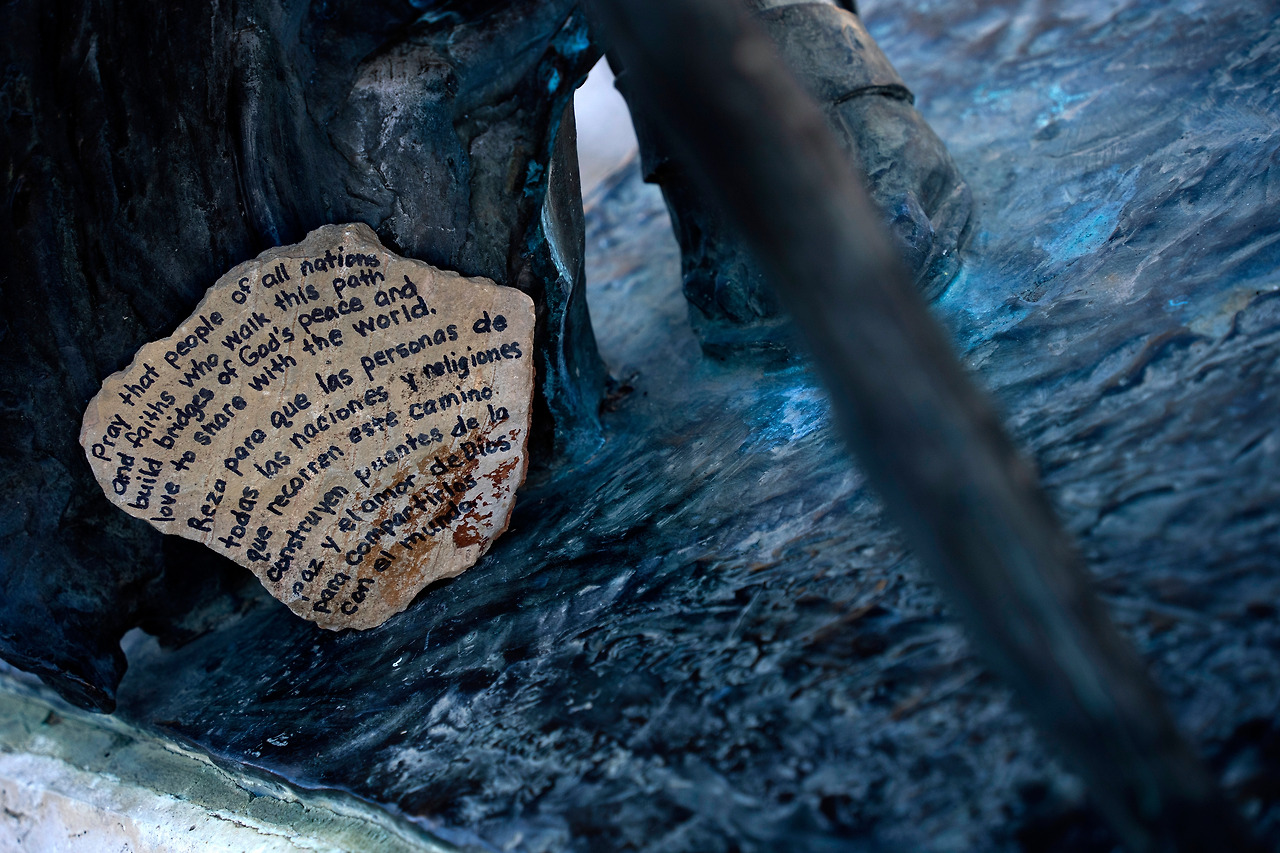 Pray that people of all nations
and faiths who walk this path
build bridges of God's peace and
love to share with the world.
Reza para que las personas de
todas las naciones y religiones
que recorren este camino
construyen puentes de la
paz y el amor de Dios
para compartirlos
con el mundo.